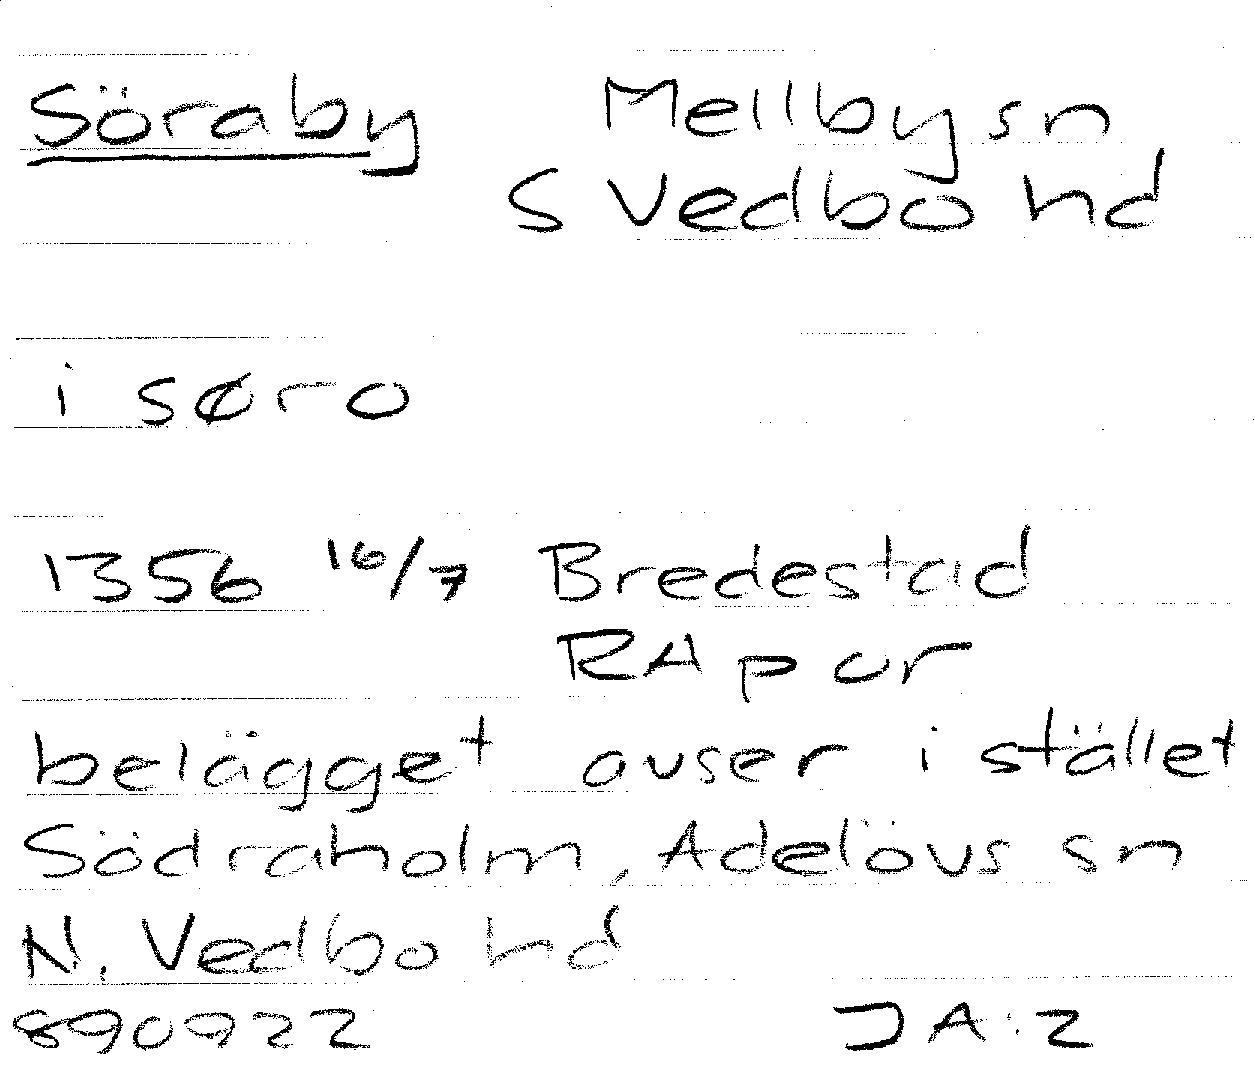 Söraby Mellby sn
S Vedbo hd
i søro
1356 16/7 Bredestad
RAp or
belägget avser i stället
Södraholm, Adelövs sn
N. Vedbo hd
890922 JA:2